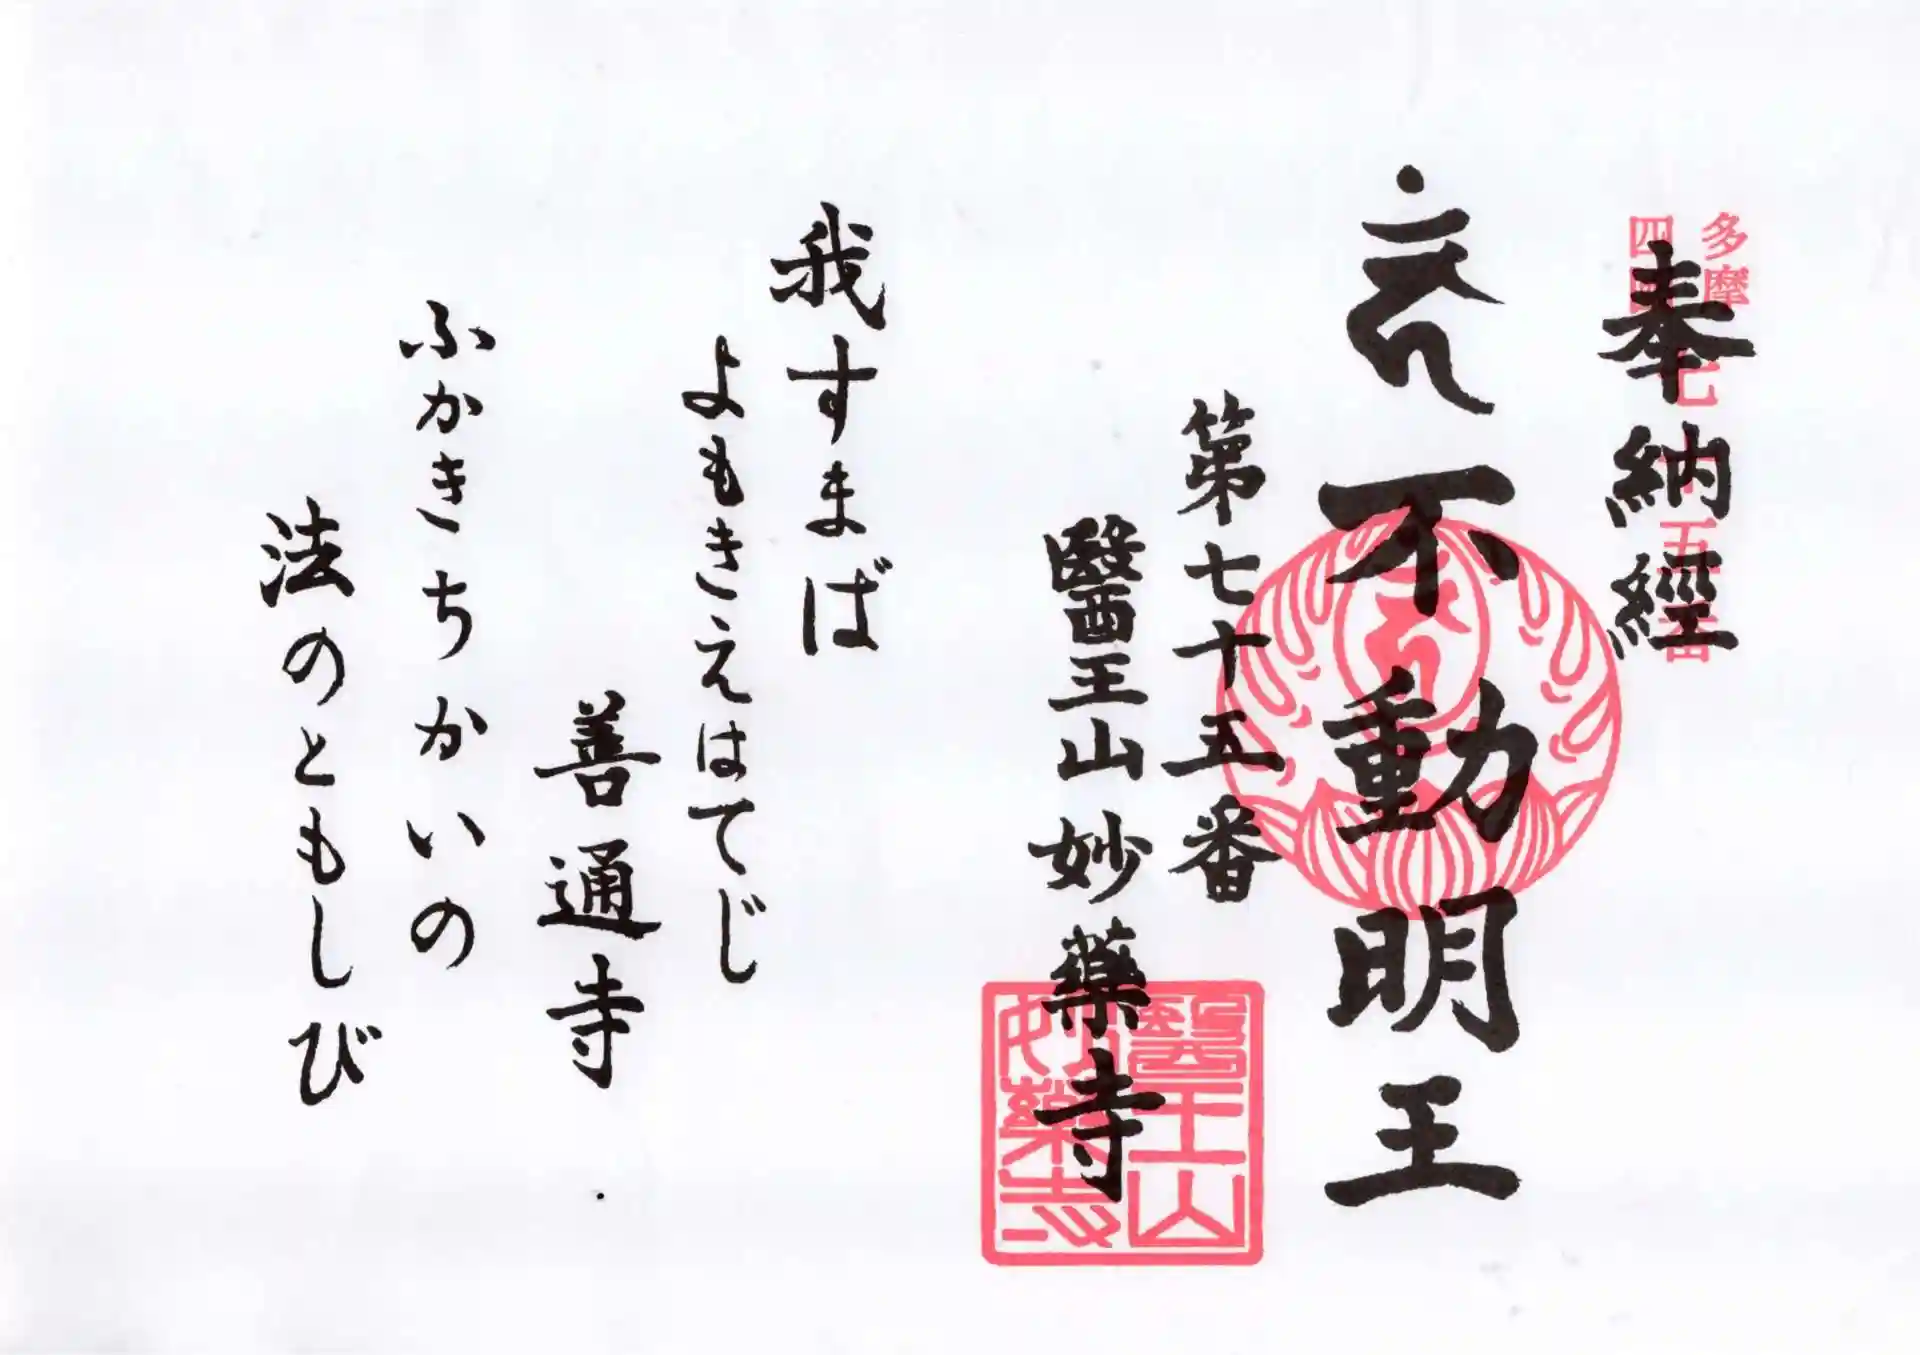 奉納經
多摩
四国
七十五番
不動明王
第七十五番
醫王山妙薬寺
醫王山
妙薬寺
我すまば
よもきえはてじ
善通寺
ふかきちかいの
法のともしび